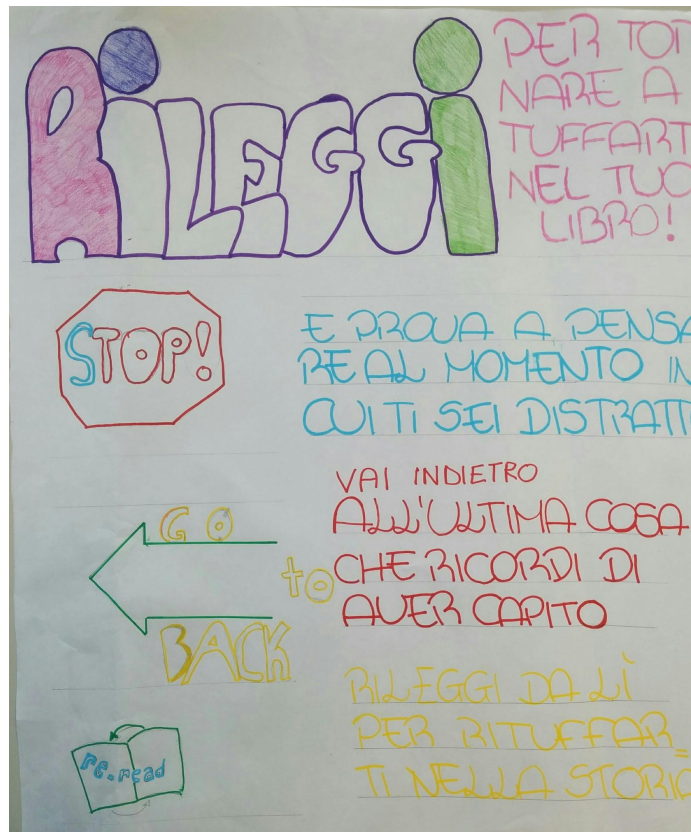 RILEGGI
PER TOR
NARE A
TUFFART
NEL TUO
LIBRO!
STOP!
E PROVA A PENSA
RE AL MOMENTO IN
CUI TI SEI DISTRATT
GO
to
BACK
VAI INDIETRO
ALL'ULTIMA COSA
CHE RICORDI DI
AVER CAPITO
re-read
RILEGGI DA LÌ
PER RITUFFAR=
TI NELLA STORIA